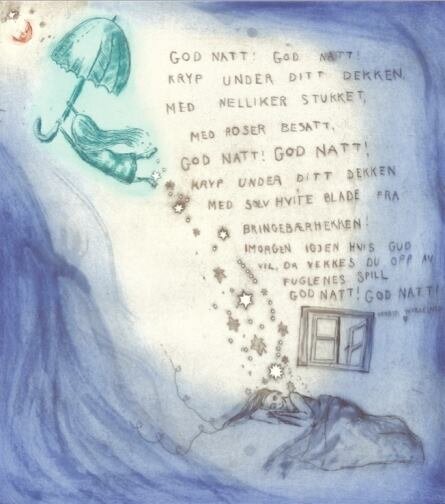 GOD NATT! GOD NATT!
KRYP UNDER DITT DEKKEN,
MED NELLIKER STUKKET,
MED ROSER BESATT,
GOD NATT! GOD NATT!
KRYP UNDER DITT DEKKEN
MED SØLVHVITE BLADE FRA
BRINGEBÆRHEKKEN!
IMORGEN IGJEN HVIS GUD
VIL, DA VEKKES DU OPP AV
FUGLENES SPILL
GOD NATT! GOD NATT!